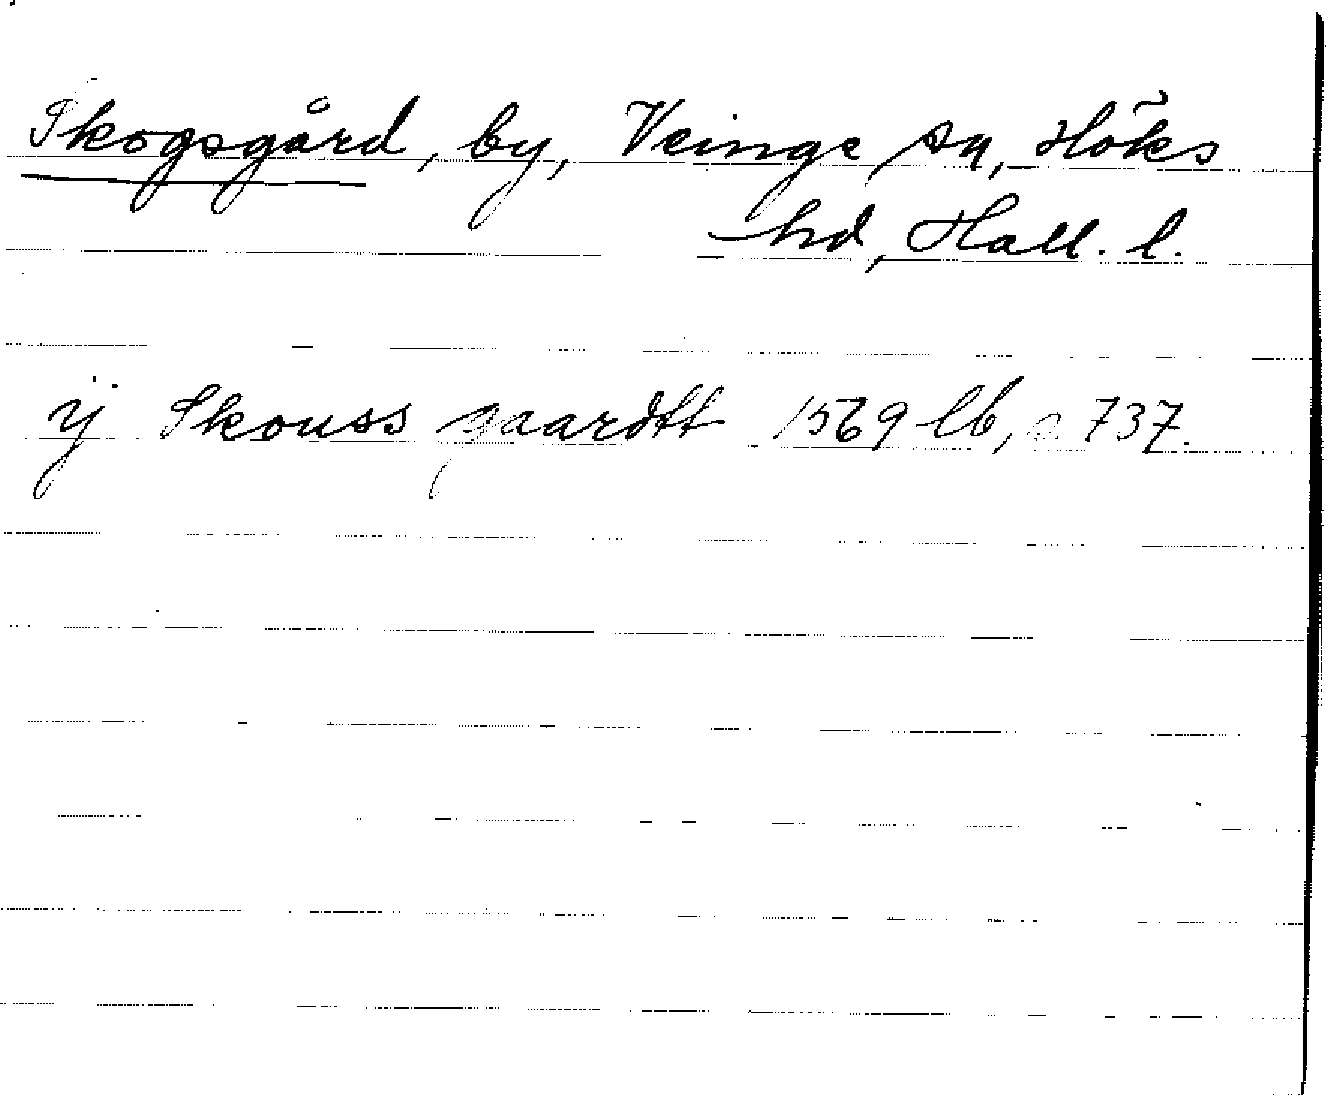 Skogsgård, by, Veinge sn, Höks
hd, Hall. l.
ij Skouss gaardtt 1569 lb, s 737.